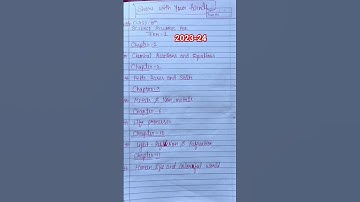 Share with Your friends
Class 10th
Science Syllabus for
Term-1
2023-24
Chapter-1
Chemical Reactions and Equations
Chapter-2
Acids, Bases and Salts
Chapter-3
Metals & Non-metals
Chapter-6
Life processes
Chapter-10
Light - Reflection & Refraction
Chapter-11
Human Eye and Colourful World